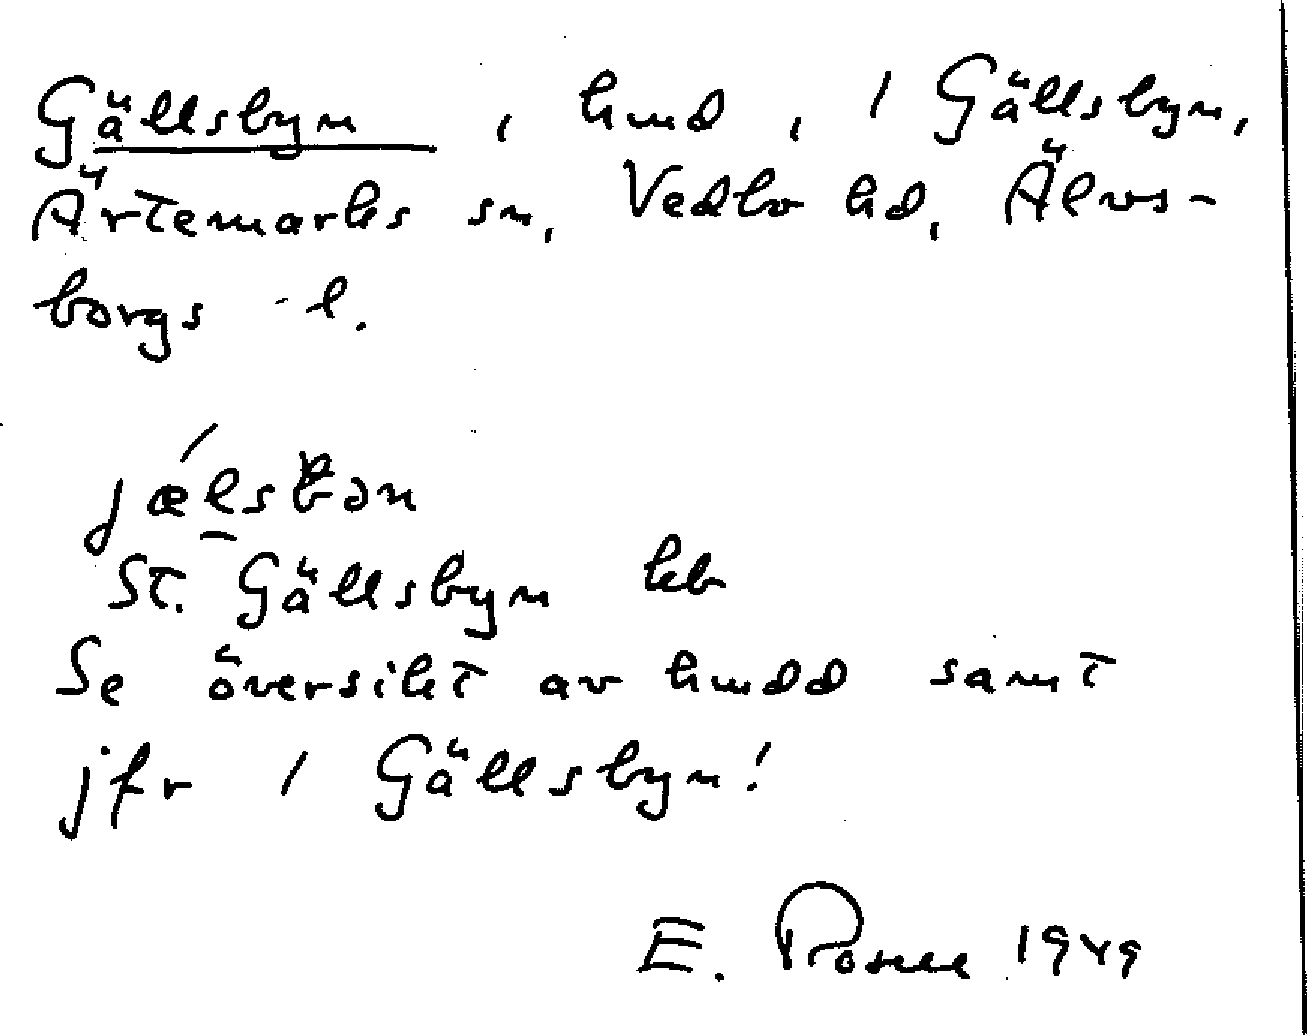 Gällsbyn, hmd, 1 Gällsbyn,
Ärtemarks sn, Vedbo hd, Älvs-
borgs l.
St. Gällsbyn kb
Se översikt av hmdd samt
jfr 1 Gällsbyn!
E. Rosell 1949